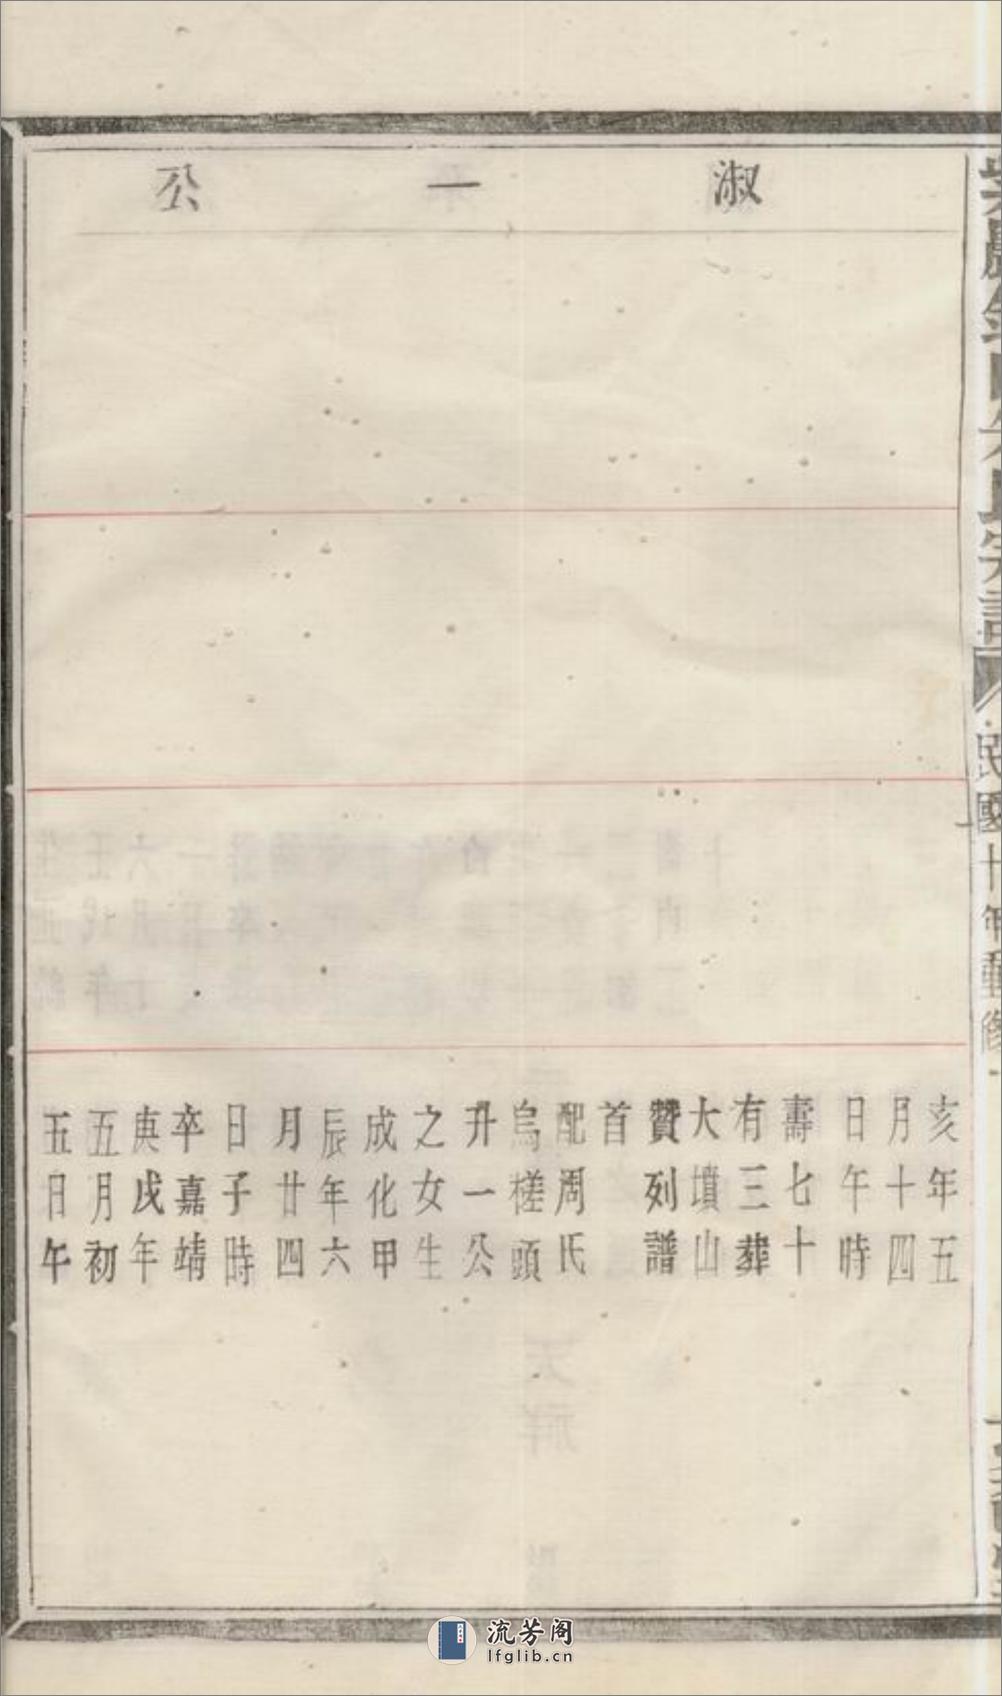 淑一公
民國十年重修
亥年五
月十四
日午時
壽七十
有三葬
大墳山
贊列譜
首
配周氏
烏槎頭
升一公
之女生
成化甲
辰年六
月廿四
日子時
卒嘉靖
庚戌年
五月初
五日午
流芳阁
lfglib.cn